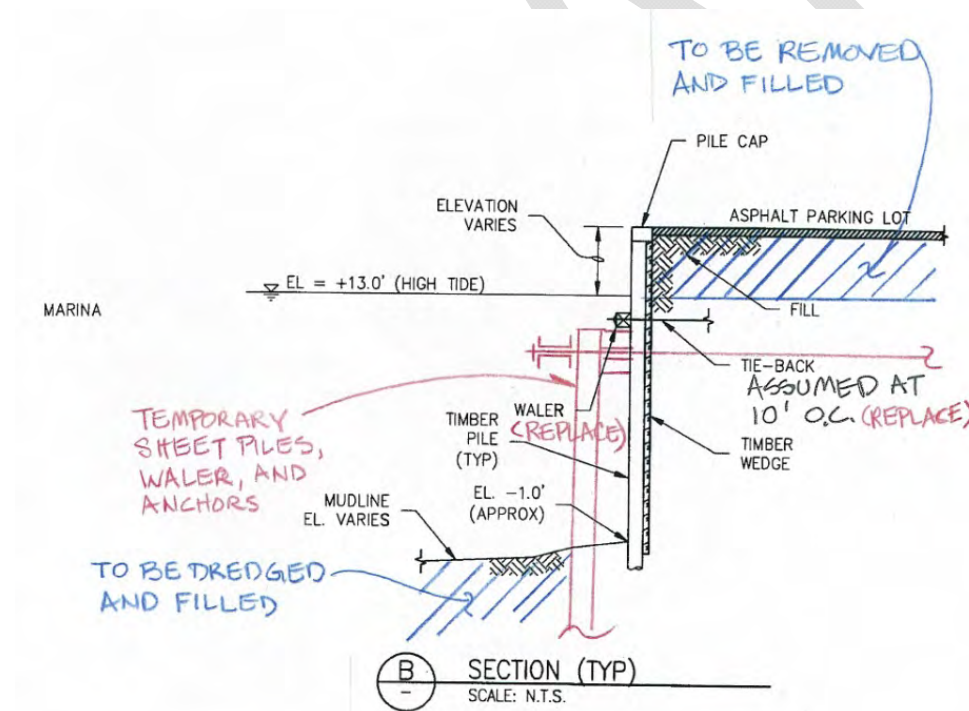 TO BE REMOVED
AND FILLED
PILE CAP
ELEVATION
VARIES
ASPHALT PARKING LOT
EL = +13.0' (HIGH TIDE)
MARINA
FILL
TIE-BACK
ASSUMED AT
10' O.C. (REPLACE)
TEMPORARY
SHEET PILES,
WALER, AND
ANCHORS
WALER
(REPLACE)
TIMBER
PILE
(TYP)
TIMBER
WEDGE
EL. -1.0'
(APPROX)
MUDLINE
EL. VARIES
TO BE DREDGED
AND FILLED
B
-
SECTION (TYP)
SCALE: N.T.S.